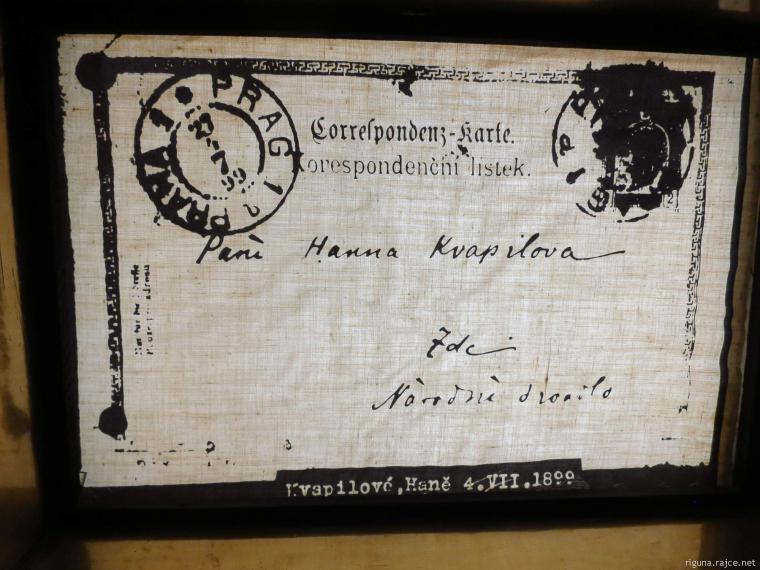 PRAG 1
PRAHA 1
99
Correspondenz-Karte.
Korespondenční lístek.
Paní Hanna Kvapilova
Zde
Národní divadlo
Kvapilové,Haně 4.VII.1899
riguna.rajce.net